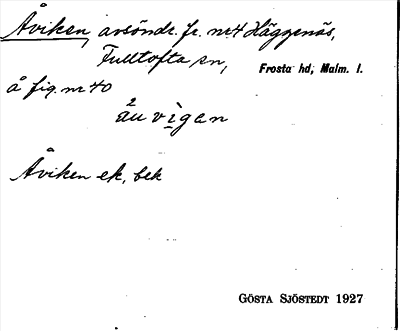 Åviken, avsöndr. fr. nr 4 Häggenäs,
Fulltofta sn,
Frosta hd, Malm. l.
å fig. nr 40
åu vìgan
Åviken ek, bek
GÖSTA SJÖSTEDT 1927